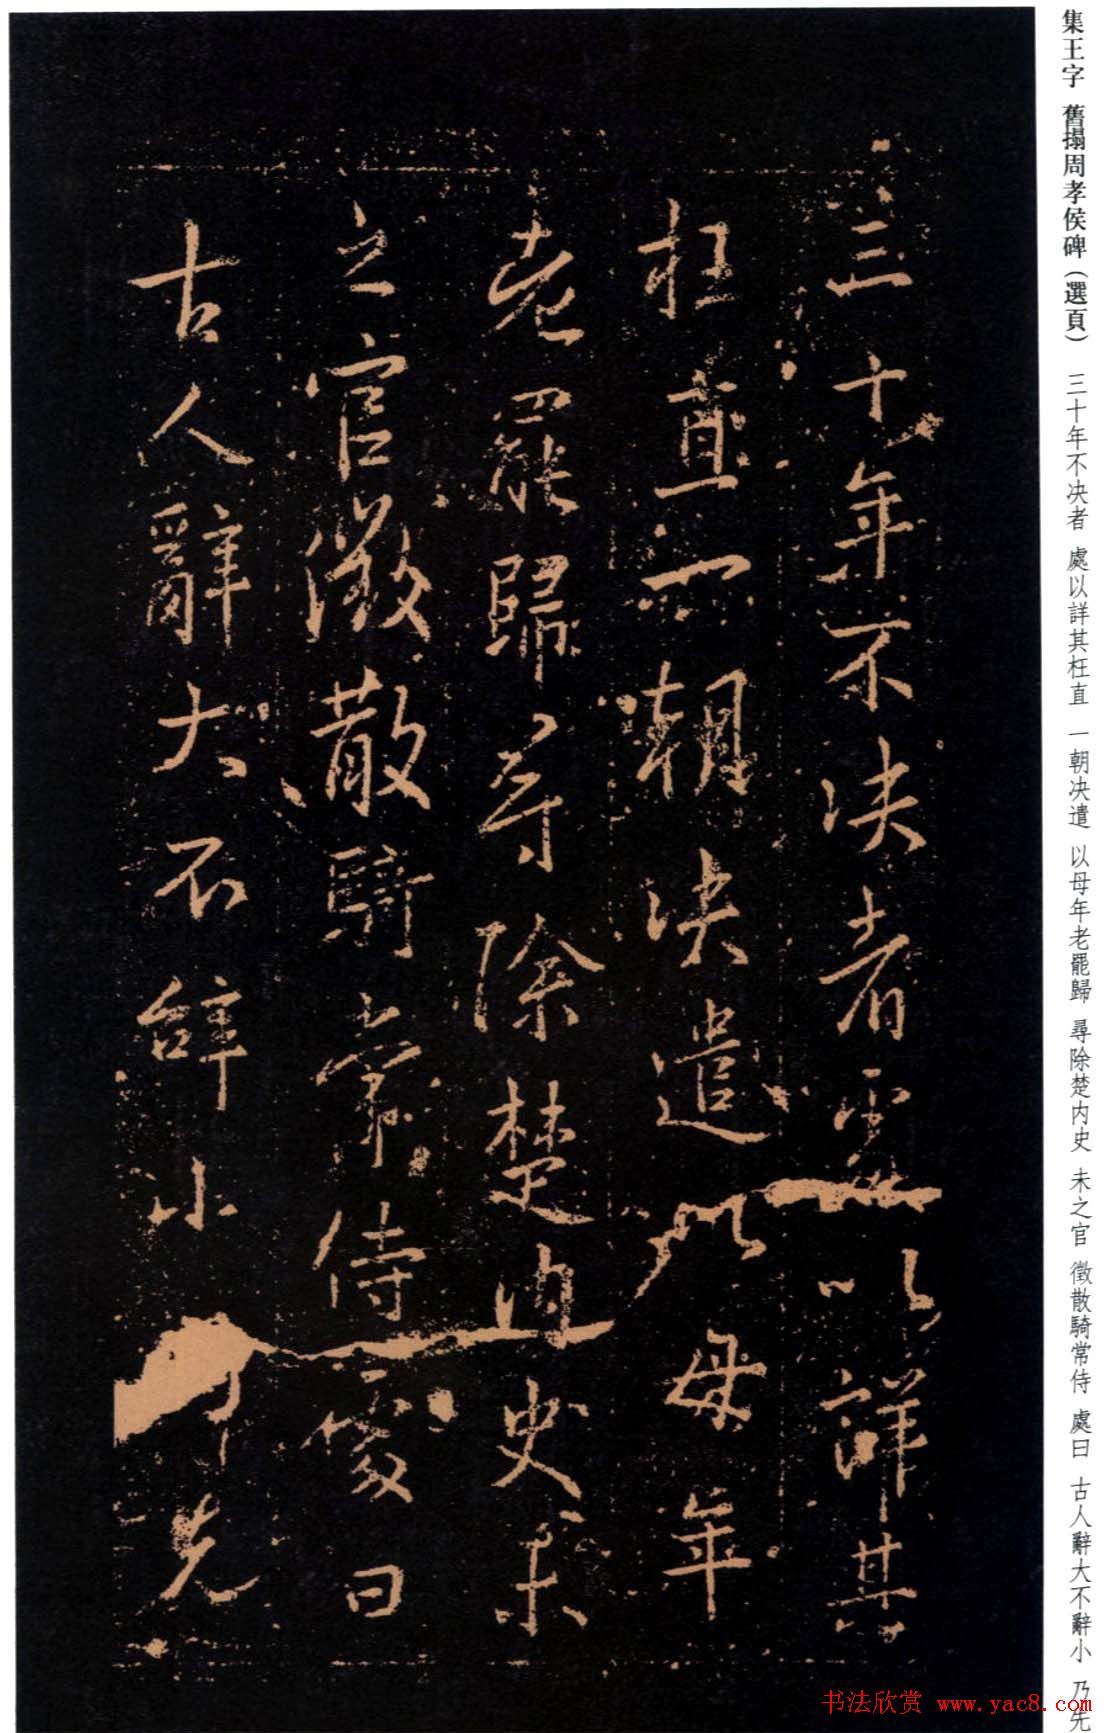 集王字 舊搨周孝侯碑(選頁) 三十年不决者 處以詳其枉直 一朝决遣 以母年老罷歸 尋除楚内史 未之官 徵散騎常侍 處曰 古人辭大不辭小 乃先
三十年不决者處以詳其
枉直一朝决遣以母年
老罷歸尋除楚内史未
之官徵散騎常侍處曰
古人辭大不辭小乃先
书法欣赏 www.yac8.com